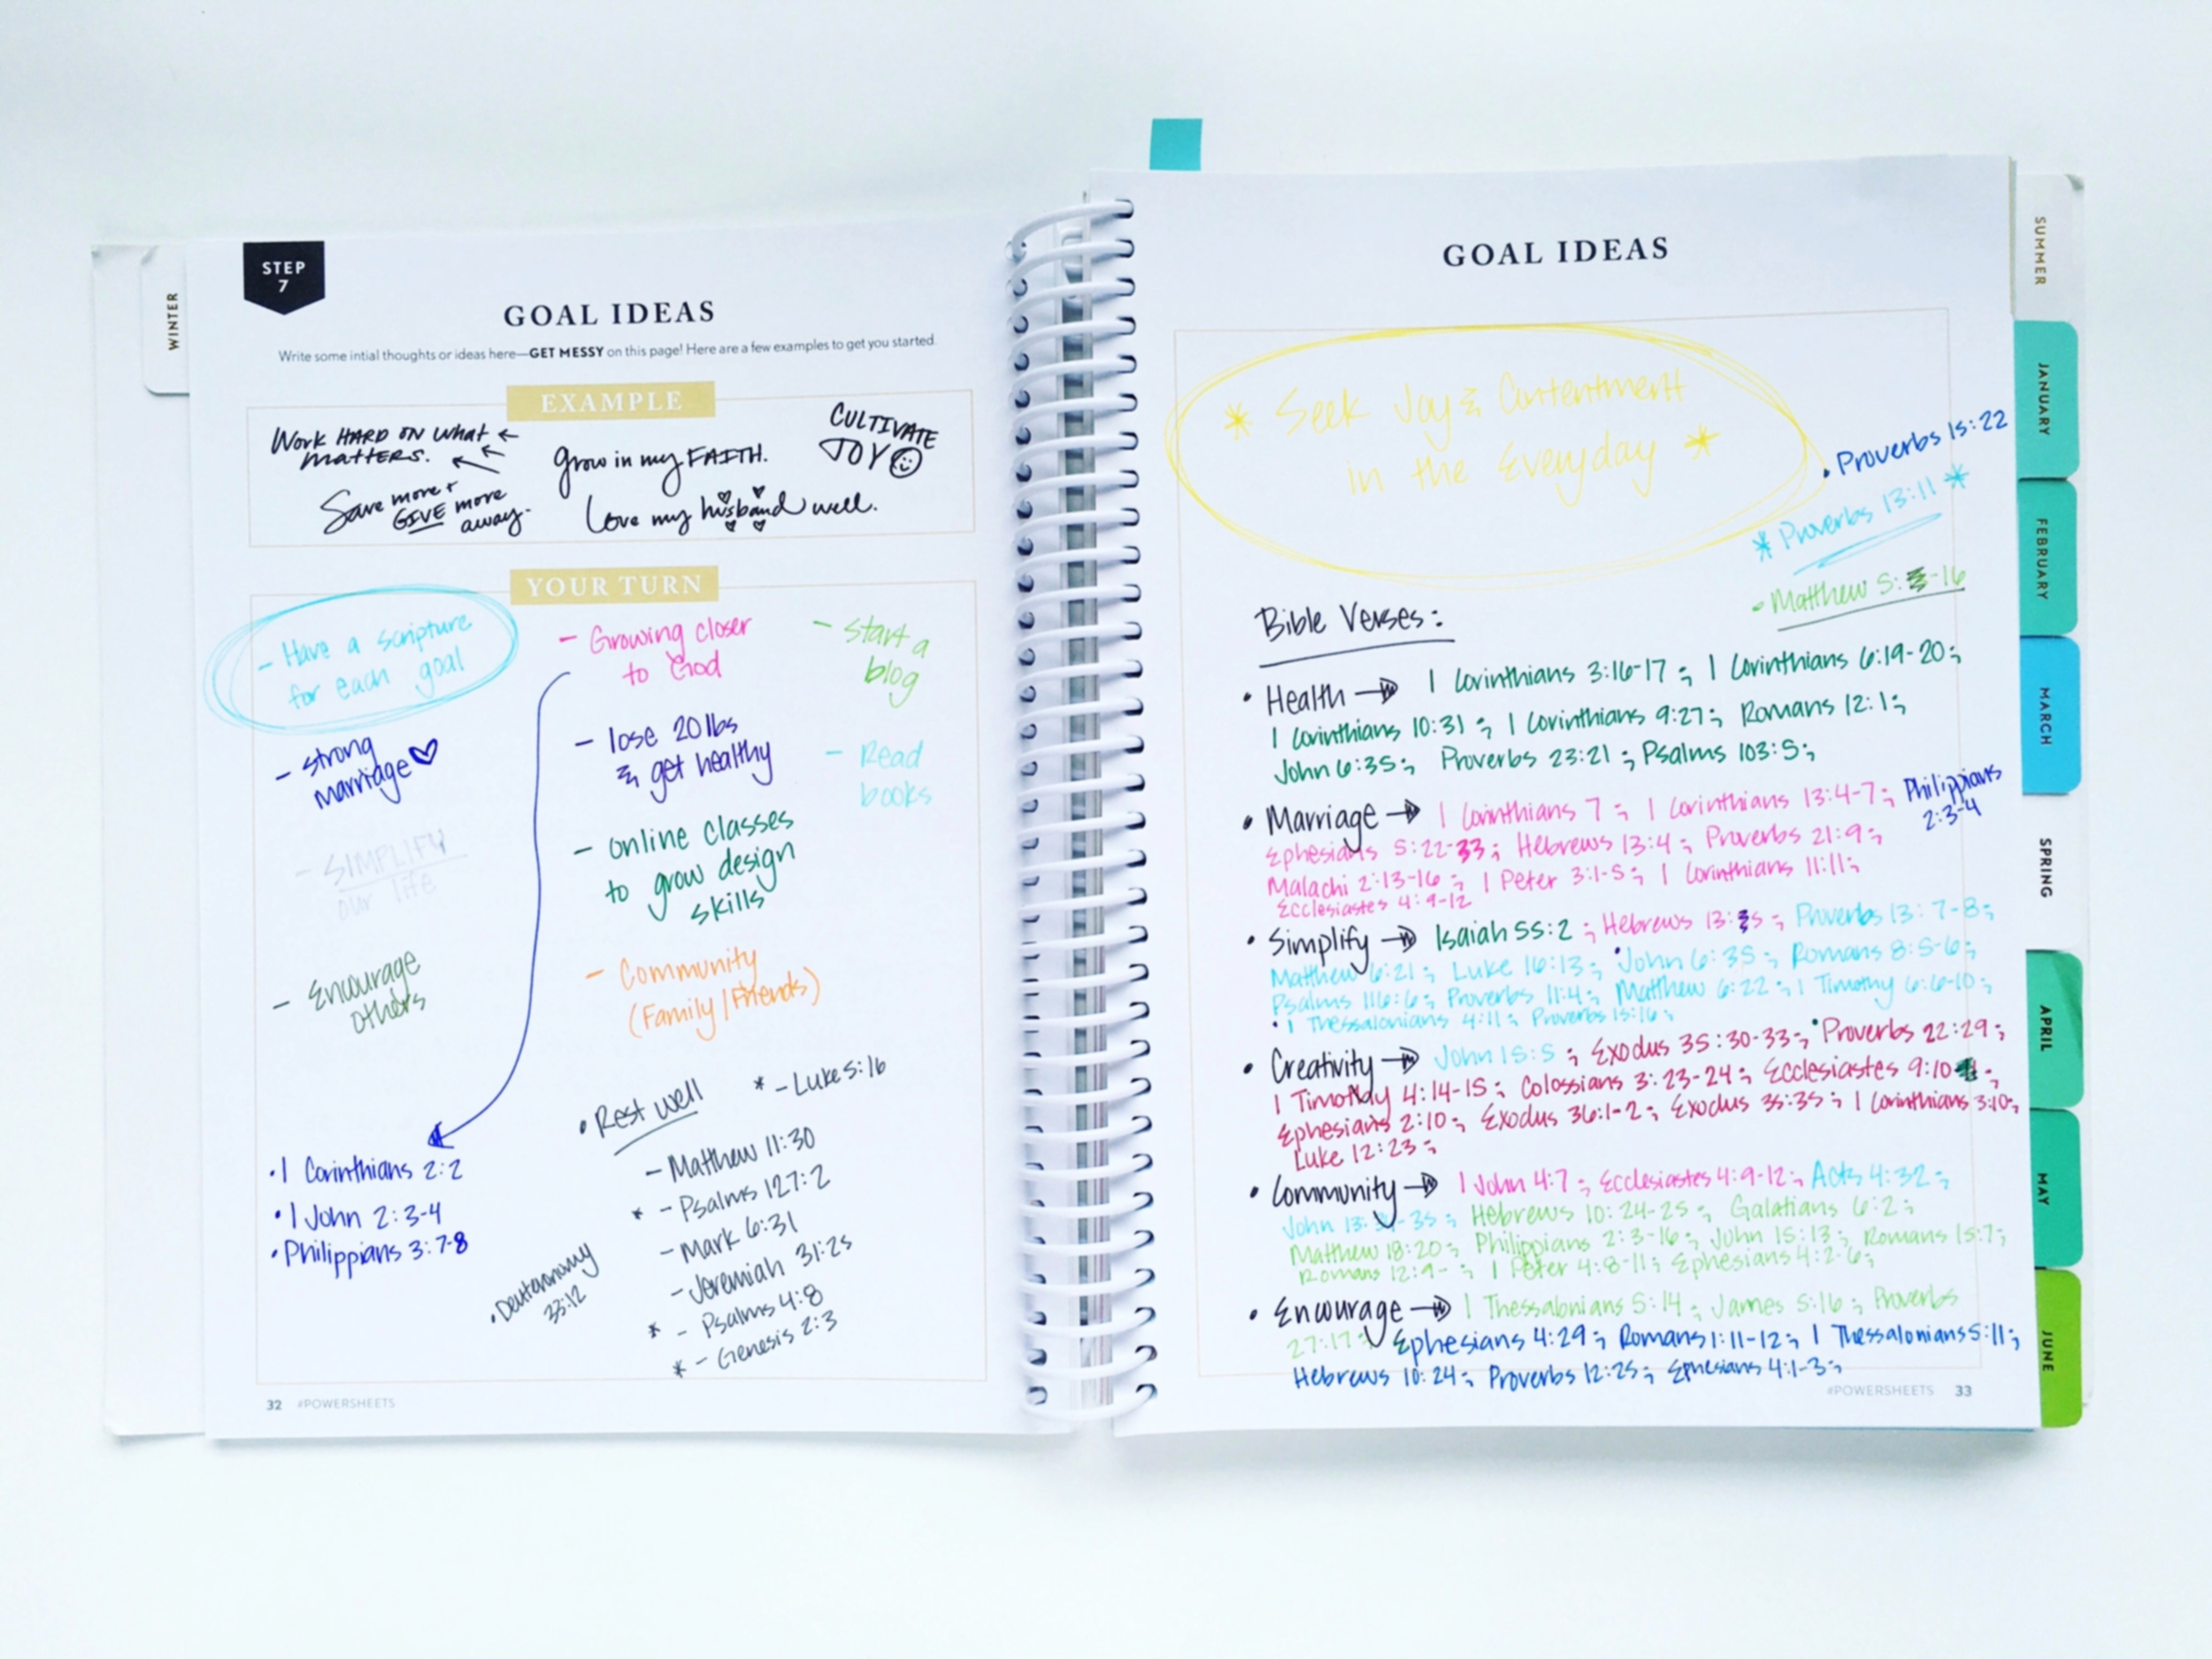 WINTER
STEP
7
GOAL IDEAS
Write some intial thoughts or ideas here—GET MESSY on this page! Here are a few examples to get you started.
EXAMPLE
Work HARD ON what
matters.
Save more +
GIVE more
away.
Grow in my FAITH.
Love my husband well.
CULTIVATE
JOY
YOUR TURN
- Have a scripture
for each goal
- strong
marriage
- SIMPLIFY
our life
- Encourage
others
- Growing closer
to God
- lose 20 lbs
& get healthy
- online classes
to grow design
skills
- Community
(Family/Friends)
- Start a
blog
- Read
books
• 1 Corinthians 2:2
• 1 John 2:3-4
• Philippians 3:7-8
• Rest well
* - Luke 5:16
- Matthew 11:30
* - Psalms 127:2
- Mark 6:31
- Jeremiah 31:25
* - Psalms 4:8
* - Genesis 2:3
• Deuteronomy
33:12
32 #POWERSHEETS
GOAL IDEAS
* Seek Joy & Contentment
in the Everyday *
• Proverbs 15:22
* Proverbs 13:11 *
• Matthew 5: -16
Bible Verses:
• Health → 1 Corinthians 3:16-17; 1 Corinthians 6:19-20;
1 Corinthians 10:31; 1 Corinthians 9:27; Romans 12:1;
John 6:35; Proverbs 23:21; Psalms 103:5;
• Marriage → 1 Corinthians 7; 1 Corinthians 13:4-7; Philippians
2:3-4
Ephesians 5:22-33; Hebrews 13:4; Proverbs 21:9;
Malachi 2:13-16; 1 Peter 3:1-5; 1 Corinthians 11:11;
Ecclesiastes 4:9-12
• Simplify → Isaiah 55:2; Hebrews 13:5; Proverbs 13:7-8;
Matthew 6:21; Luke 16:13; • John 6:35; Romans 8:5-6;
Psalms 116:6; Proverbs 11:4; Matthew 6:22; 1 Timothy 6:6-10;
• 1 Thessalonians 4:11; Proverbs 15:16;
• Creativity → John 15:5; Exodus 35:30-33; • Proverbs 22:29;
1 Timothy 4:14-15; Colossians 3:23-24; Ecclesiastes 9:10;
Ephesians 2:10; Exodus 36:1-2; Exodus 35:35; 1 Corinthians 3:10;
Luke 12:23;
• Community → 1 John 4:7; Ecclesiastes 4:9-12; Acts 4:32;
John 13: -35; Hebrews 10:24-25; Galatians 6:2;
Matthew 18:20; Philippians 2:3-16; John 15:13; Romans 15:7;
Romans 12:9- ; 1 Peter 4:8-11; Ephesians 4:2-6;
• Encourage → 1 Thessalonians 5:14; James 5:16; Proverbs
27:17; Ephesians 4:29; Romans 1:11-12; 1 Thessalonians 5:11;
Hebrews 10:24; Proverbs 12:25; Ephesians 4:1-3;
#POWERSHEETS 33
SUMMER
JANUARY
FEBRUARY
MARCH
SPRING
APRIL
MAY
JUNE